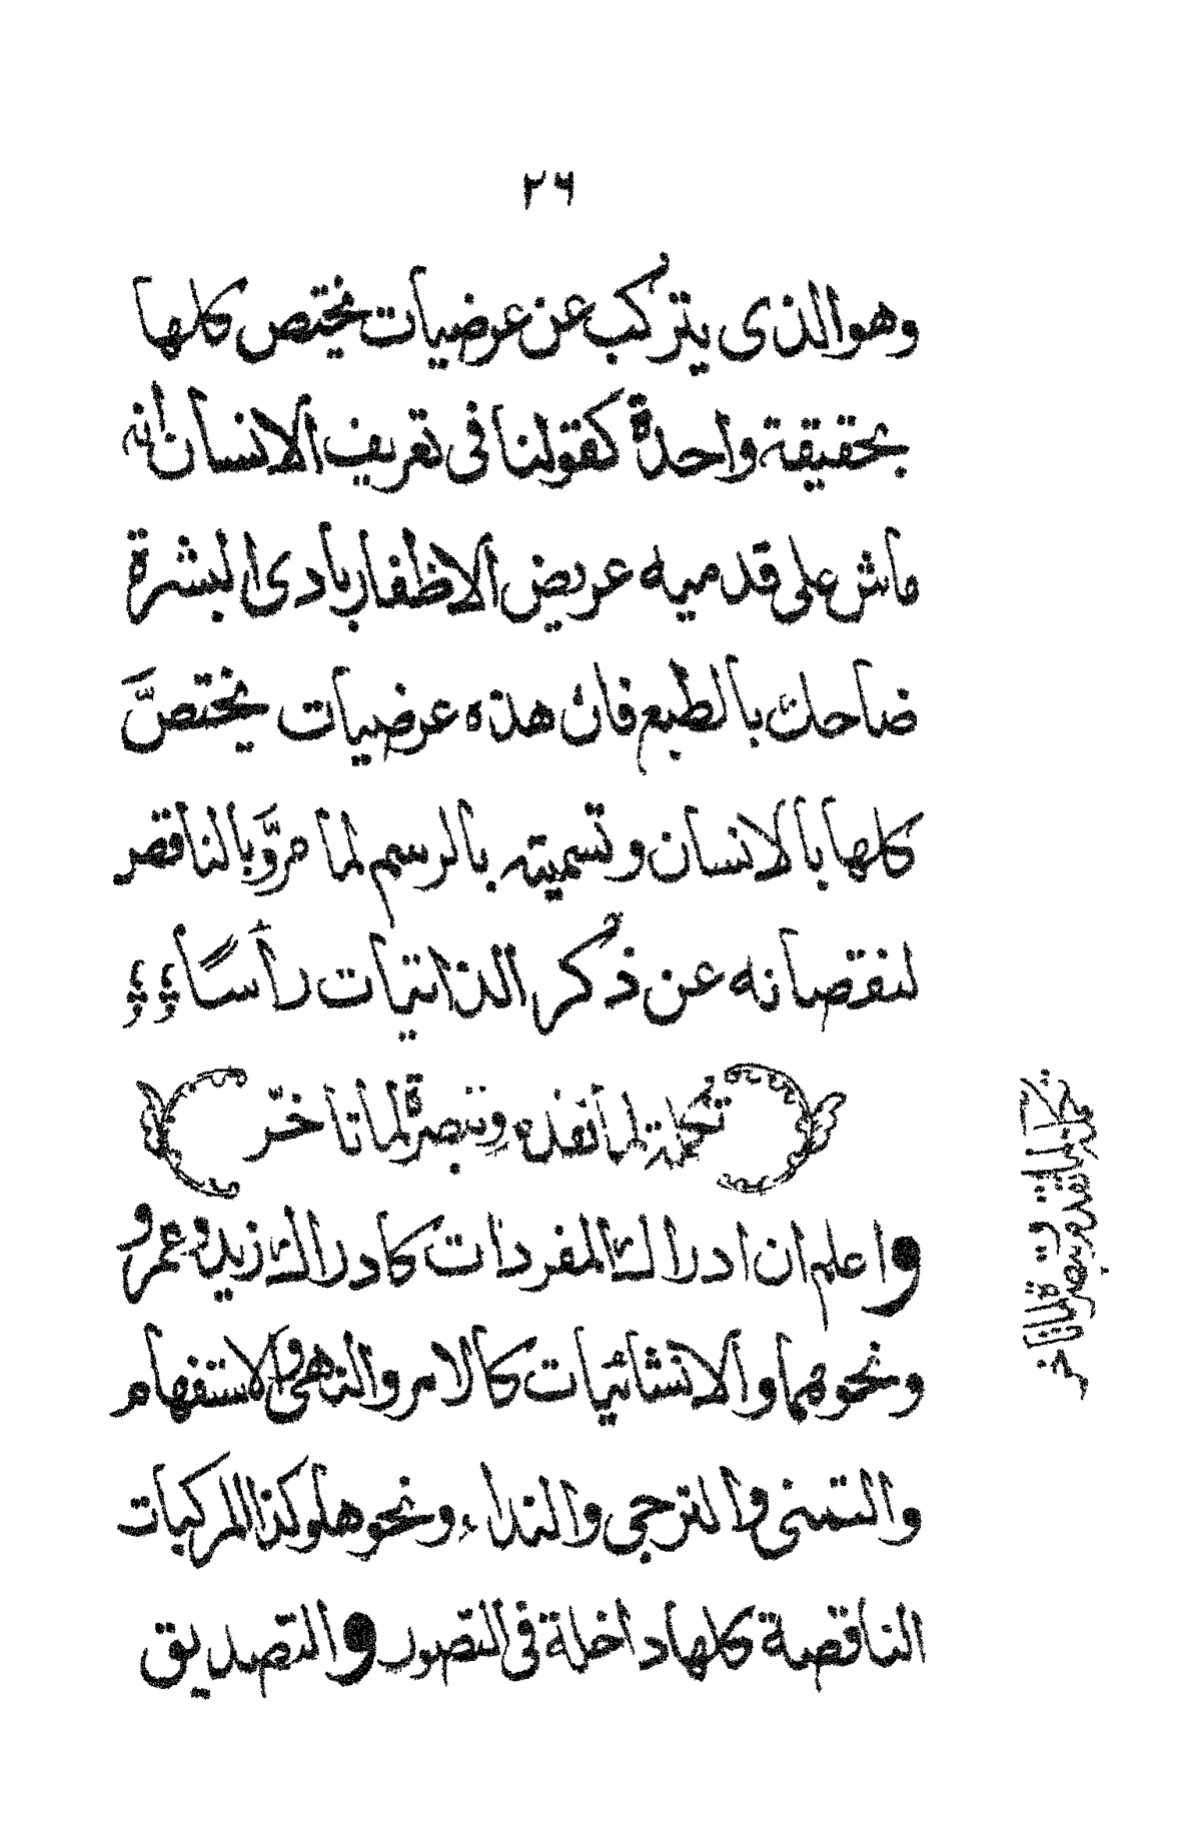 ٢٦
وهو الذى يتركب عن عرضيات تختص كلها
بحقيقة واحدة كقولنا فى تعريف الانسان انه
ماش على قدميه عريض الاظفار بادى البشرة
ضاحك بالطبع فان هذه عرضيات يختصّ
كلها بالانسان وتسميته بالرسم لما مرَّ وبالناقص
لنقصانه عن ذكر الذاتيات رأساً
تكملة لما تقدم وتبصرة لما تأخّر
واعلم ان ادراك المفردات كادراك زيد وعمرو
ونحوهما والانشائيات كالامر والنهى والاستفهام
والتمنى والترجى والنداء ونحوها وكذا المركبات
الناقصة كلها داخلة فى التصور والتصديق